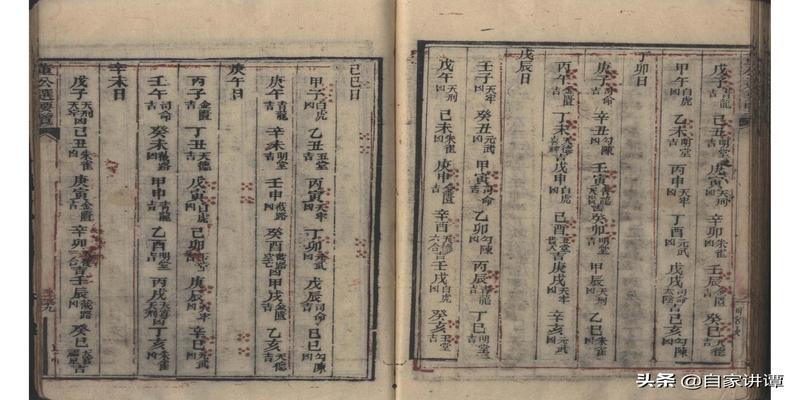 戊子青龍吉己丑明堂吉庚寅天刑凶辛卯朱雀凶壬辰金匱吉癸巳天德吉
甲午白虎凶乙未堂吉丙申天牢凶丁酉元武凶戊戌司命太陰吉己亥勾陳凶
丁卯日
庚子司命吉辛丑勾陳凶壬寅青龍天貴吉癸卯明堂吉甲辰天刑凶乙巳朱雀凶
丙午金匱吉丁未天德吉戊申白虎凶己酉玉堂吉庚戌天牢凶辛亥元武凶
戊辰日
壬子天牢凶癸丑元武凶甲寅司命吉乙卯勾陳凶丙辰青龍吉丁巳明堂吉
戊午天刑凶己未朱雀凶庚申金匱吉辛酉天德六合吉壬戌白虎凶癸亥玉堂吉
己巳日
甲子白虎凶乙丑玉堂吉丙寅天牢凶丁卯元武凶戊辰司命吉己巳勾陳凶
庚午青龍吉辛未明堂吉壬申截路凶癸酉截路空亡甲戌金匱吉乙亥天德吉
庚午日
丙子金匱吉丁丑天德吉戊寅白虎凶己卯玉堂吉庚辰天牢凶辛巳元武凶
壬午司命吉癸未截路凶甲申青龍吉乙酉明堂吉丙戌天刑凶丁亥朱雀凶
辛未日
戊子天刑天牢凶己丑朱雀凶庚寅金匱吉辛卯六合吉壬辰截路凶癸巳福星吉
董公選要覽
頭条 @自家讲谭